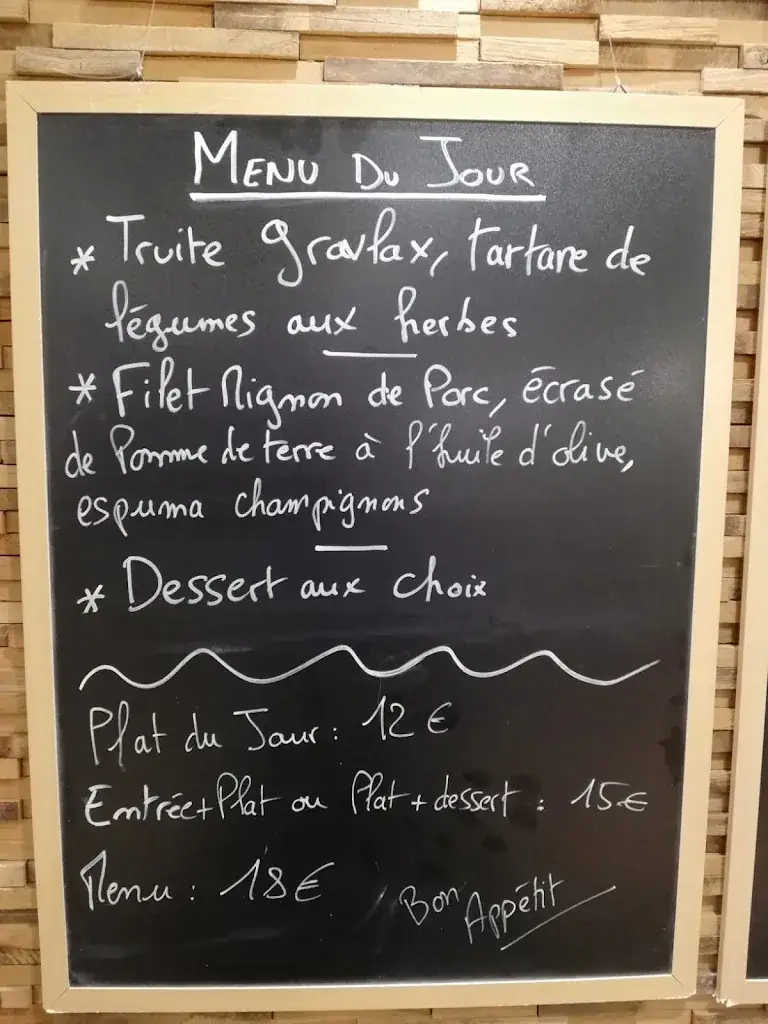 MENU DU JOUR
* Truite gravlax, tartare de
légumes aux herbes
* Filet Mignon de Porc, écrasé
de Pomme de terre à l'huile d'olive,
espuma champignons
* Dessert aux choix
Plat du Jour : 12 €
Entrée+Plat ou Plat + dessert : 15€
Menu : 18€
Bon Appétit